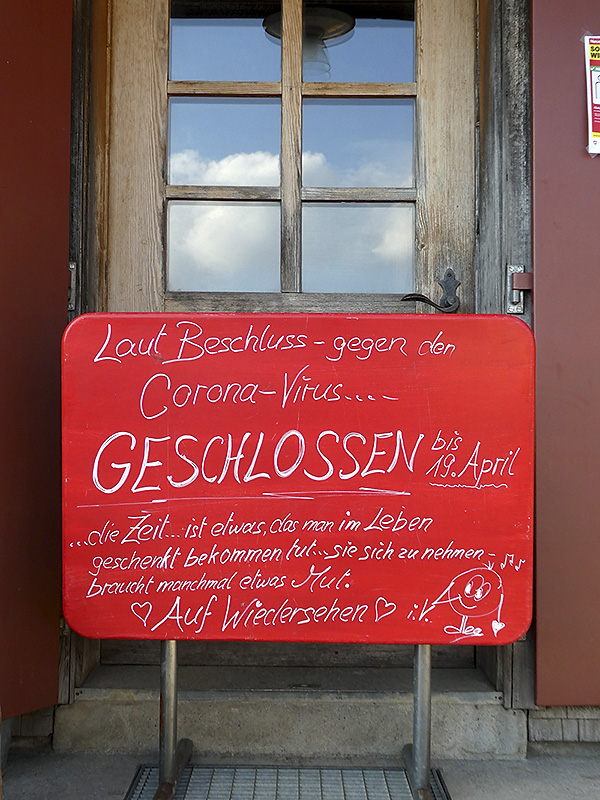 Laut Beschluss - gegen den
Corona-Virus....-
GESCHLOSSEN bis
19. April
...die Zeit... ist etwas, das man im Leben
geschenkt bekommen tut... sie sich zu nehmen -
braucht manchmal etwas Mut.
♡ Auf Wiedersehen ♡ i.V.